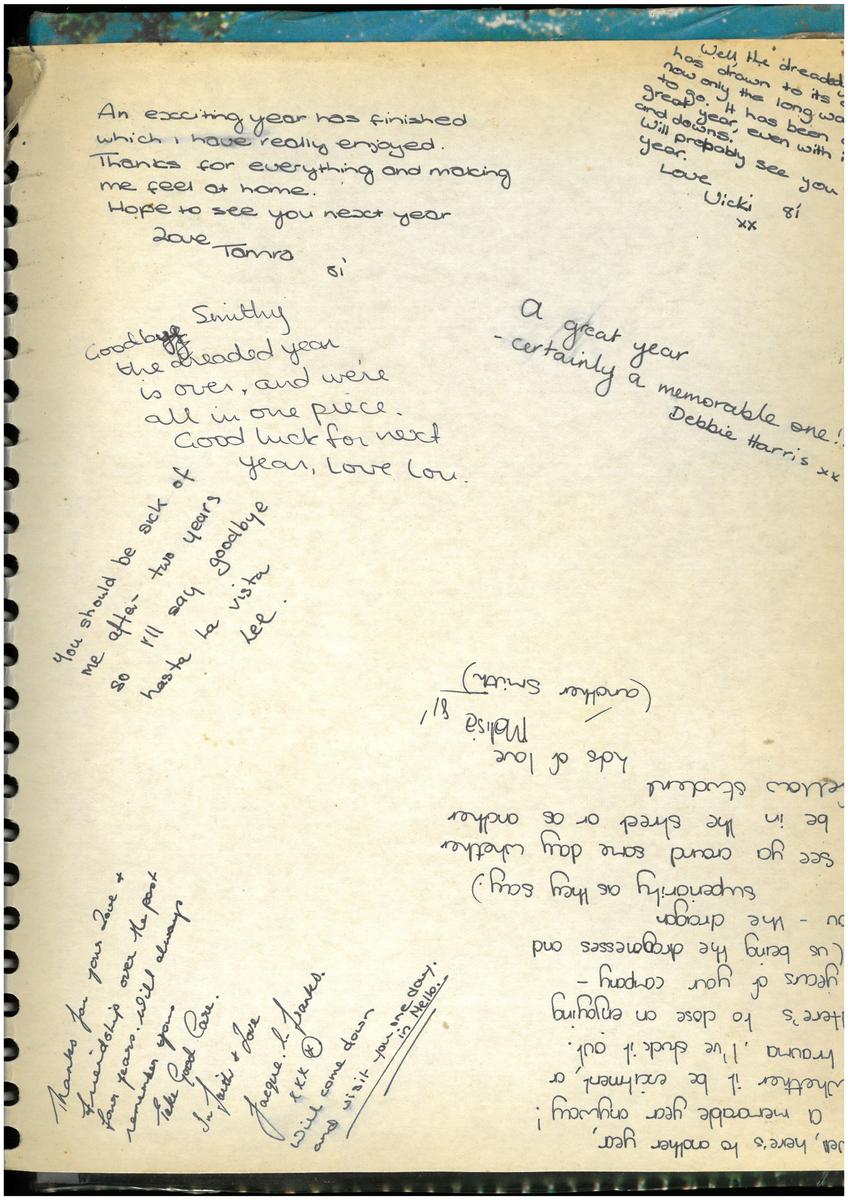 An exciting year has finished
which I have really enjoyed.
Thanks for everything and making
me feel at home.
Hope to see you next year
Love
Tamra
81
Well, the dreaded
has drawn to its
now only the long
to go. It has been
great year, even with
and downs.
Will probably see you
year.
Love
Vicki 81
xx
Smithy
Goodbye
the dreaded year
is over, and we're
all in one piece.
Good luck for next
year, Love Lou.
A great year
- certainly a memorable one!!
Debbie Harris xx
You should be sick of
me after two years
so I'll say goodbye
hasta la vista
Lee.
Well, here's to another year,
a memorable year anyway!
whether it be excitment or
trauma, I've stuck it out.
Here's to close on enjoying
years of your company -
(us being the dragonesses and
ou - the dragon
superiority as they say.)
see ya around some day whether
be in the street or as another
fellow student
lots of love
Melisa 81'
(another Smith)
Thanks for your Love +
friendship over the past
four years. Will always
remember you.
Take Good Care.
In Faith + Love
Jacquie. L. Franks.
xxx
Will come down
and visit you one day.
in Mello.